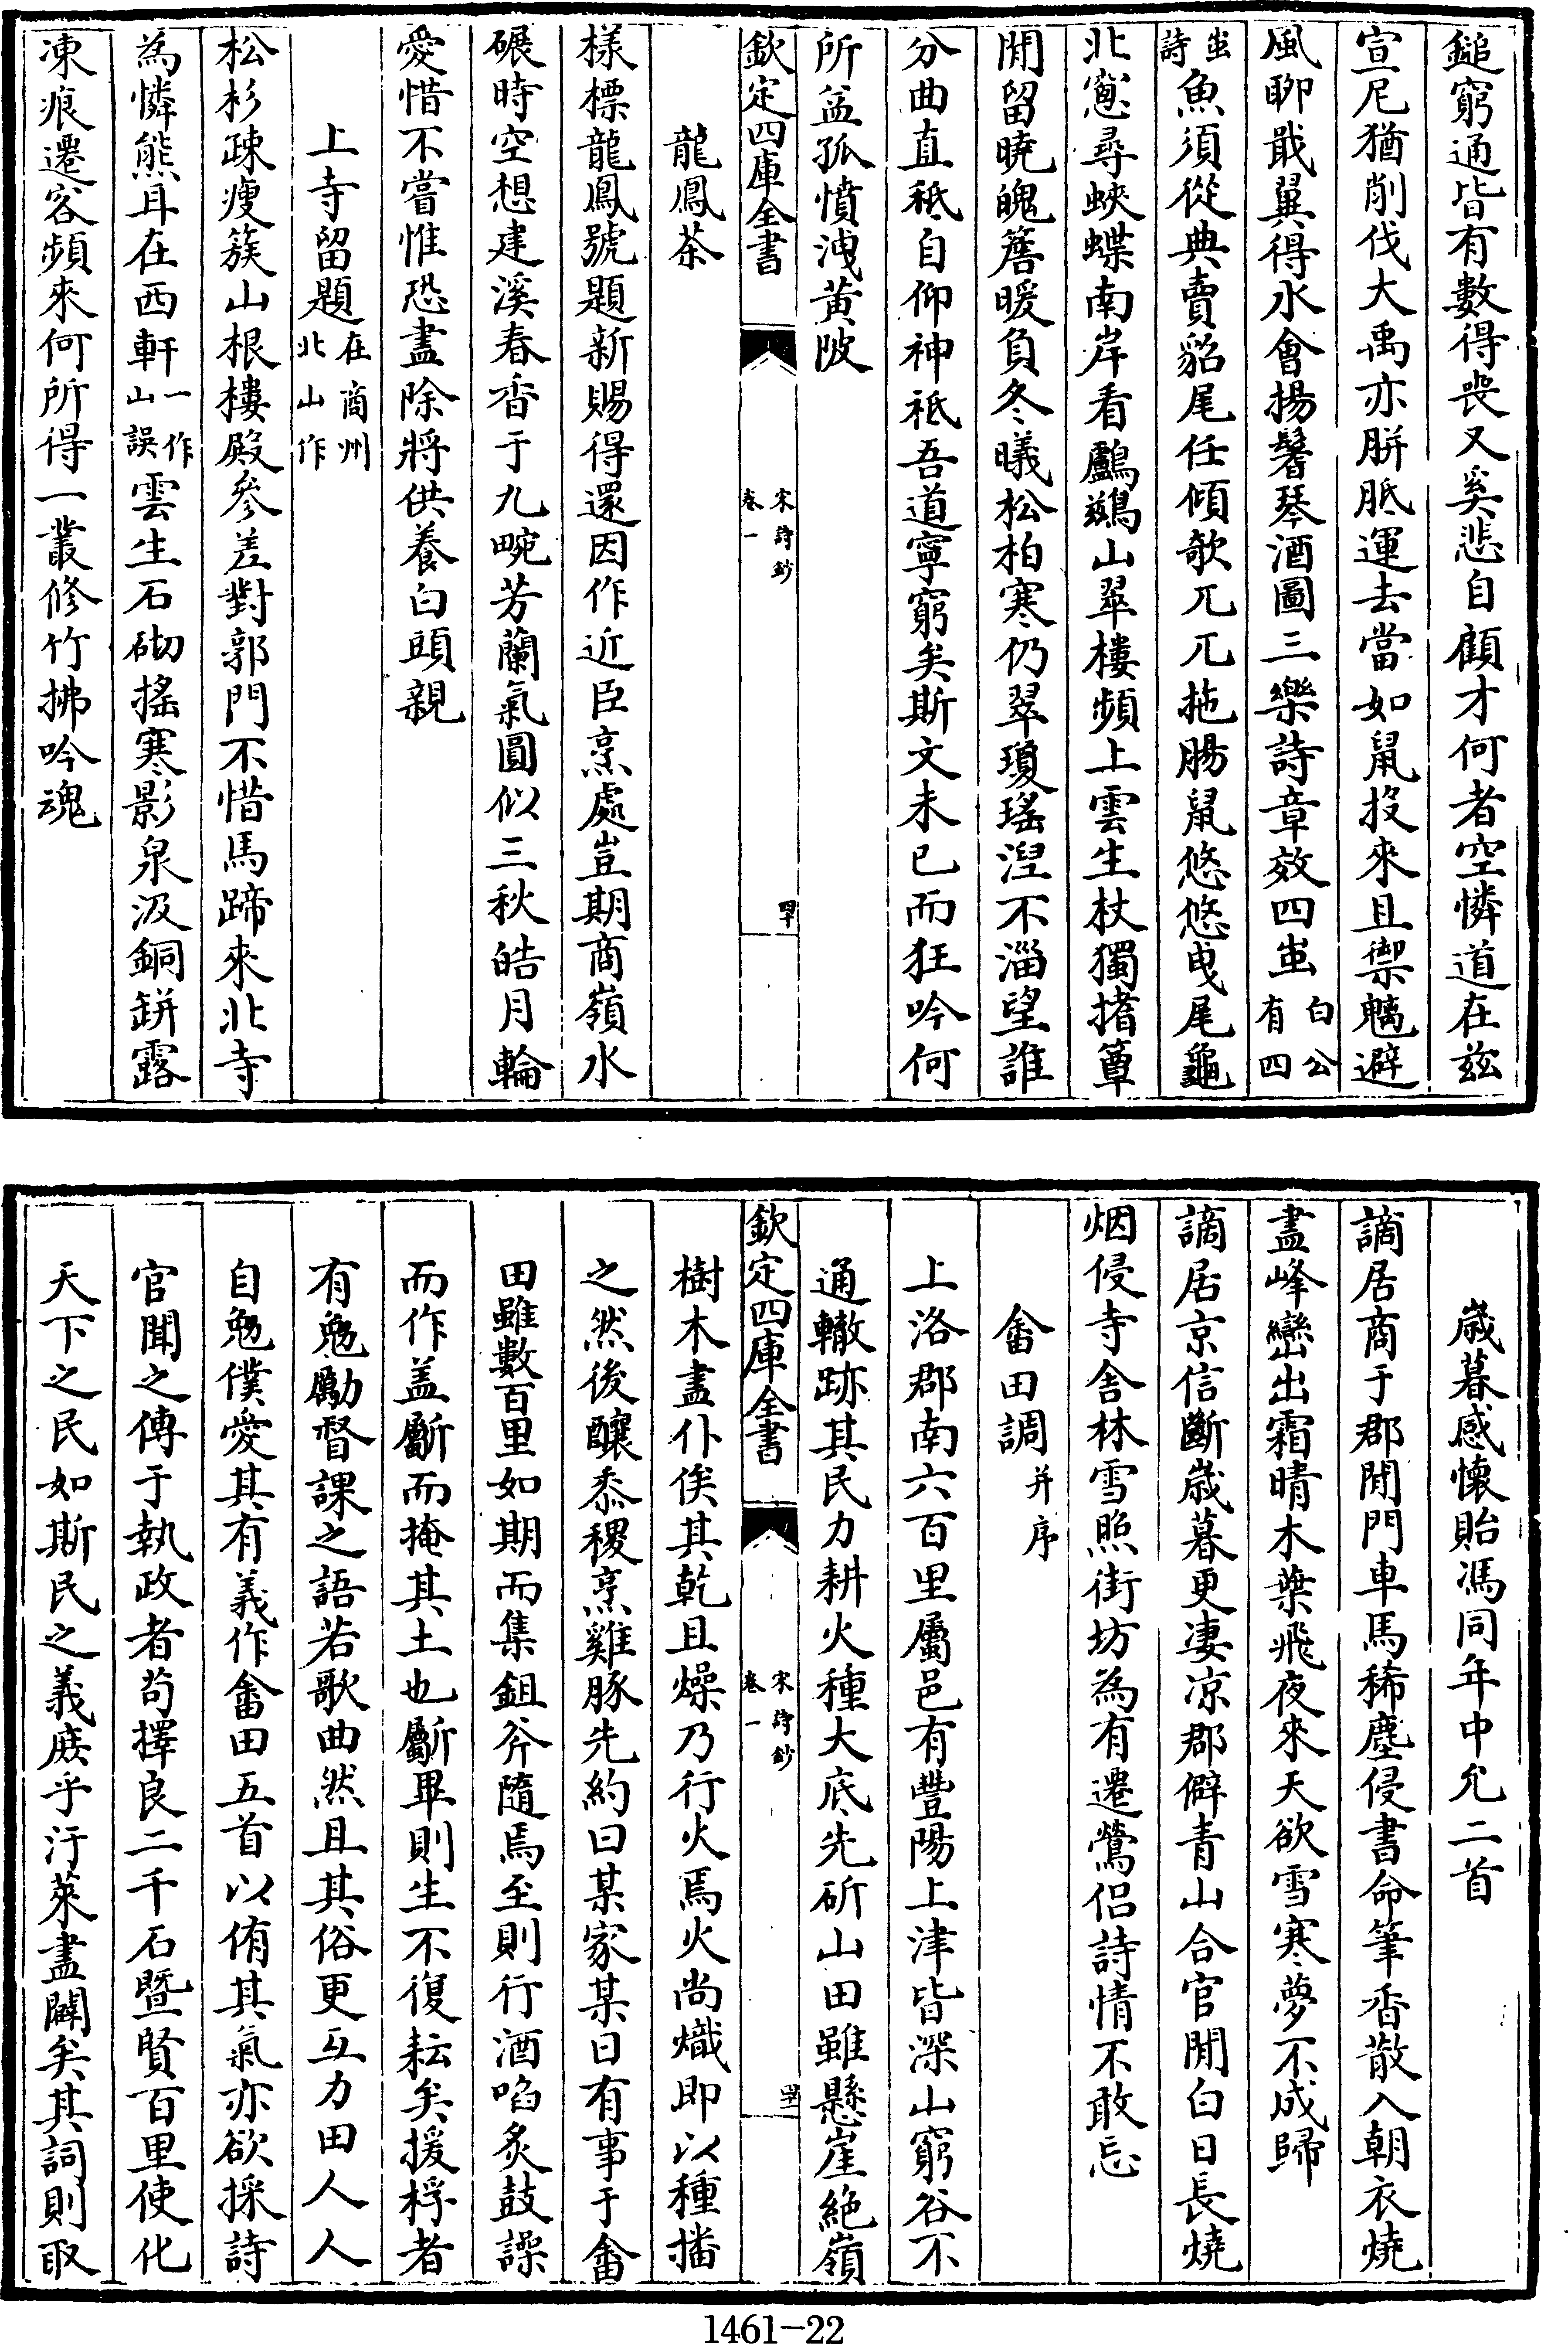 鎚窮通皆有數得喪又奚悲自顧才何者空憐道在兹
宣尼猶削伐大禹亦胼胝運去當如鼠投來且禦魑避
風聊戢翼得水會揚鬐琴酒圖三樂詩章效四䖝白公有四
䖝詩魚須從典賣貂尾任傾欹兀兀拖腸鼠悠悠曳尾龜
北窻尋蛺蝶南岸看鸕鷀山翠樓頻上雲生杖獨搘簟
閒留曉魄簷暖負冬曦松柏寒仍翠瓊瑤湼不淄望誰
分曲直秪自仰神祗吾道寧窮矣斯文未已而狂吟何
所益孤憤洩黄陂
欽定四庫全書
宋詩鈔
卷一
龍鳳茶
樣標龍鳳號題新賜得還因作近臣烹處豈期商嶺水
碾時空想建溪春香于九畹芳蘭氣圓似三秋皓月輪
愛惜不嘗惟恐盡除將供養白頭親
上寺留題在商州北山作
松杉疎瘦簇山根樓殿參差對郭門不惜馬蹄來北寺
為憐熊耳在西軒一作山誤雲生石砌搖寒影泉汲銅缾露
凍痕遷客頻來何所得一叢修竹拂吟魂
歲暮感懷貽馮同年中允二首
謫居商于郡閒門車馬稀塵侵書命筆香散入朝衣燒
盡峰巒出霜晴木葉飛夜來天欲雪寒夢不成歸
謫居京信斷歲暮更凄凉郡僻青山合官閒白日長燒
烟侵寺舍林雪照街坊為有遷鶯侣詩情不敢忘
畬田調并序
上洛郡南六百里屬邑有豐陽上津皆深山窮谷不
通轍跡其民力耕火種大底先斫山田雖懸崖絶嶺
欽定四庫全書
宋詩鈔
卷一
樹木盡仆俟其乾且燥乃行火焉火尚熾即以種播
之然後釀黍稷烹雞豚先約曰某家某日有事于畬
田雖數百里如期而集鉏斧隨焉至則行酒啗炙鼓譟
而作盖斸而掩其土也斸畢則生不復耘矣援桴者
有勉勵督課之語若歌曲然且其俗更互力田人人
自勉僕愛其有義作畬田五首以侑其氣亦欲採詩
官聞之傳于執政者苟擇良二千石暨賢百里使化
天下之民如斯民之義庶乎汙萊盡闢矣其詞則取
1461-22